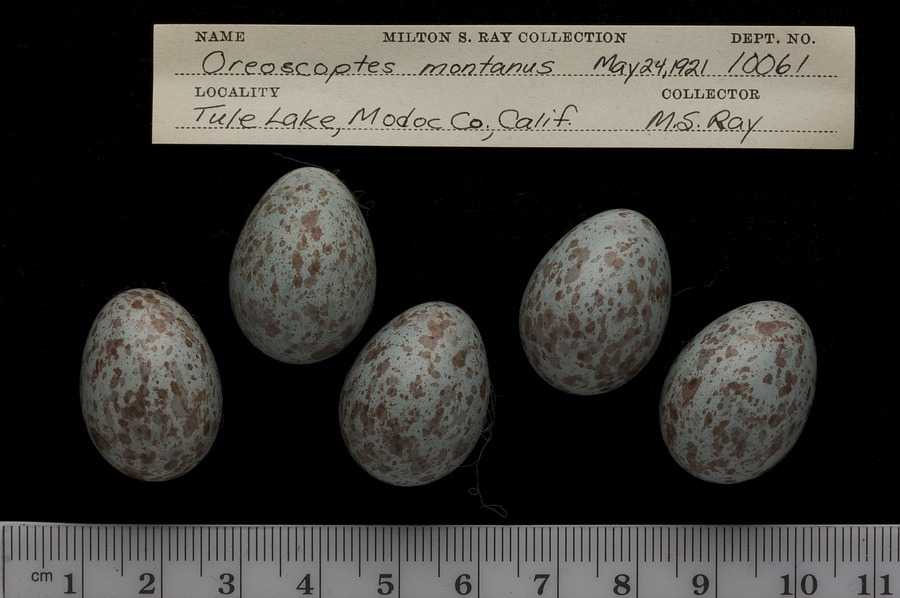 NAME MILTON S. RAY COLLECTION DEPT. NO.
Oreoscoptes montanus May 24, 1921 10061
LOCALITY COLLECTOR
Tule Lake, Modoc Co., Calif. M.S. Ray
cm 1 2 3 4 5 6 7 8 9 10 11